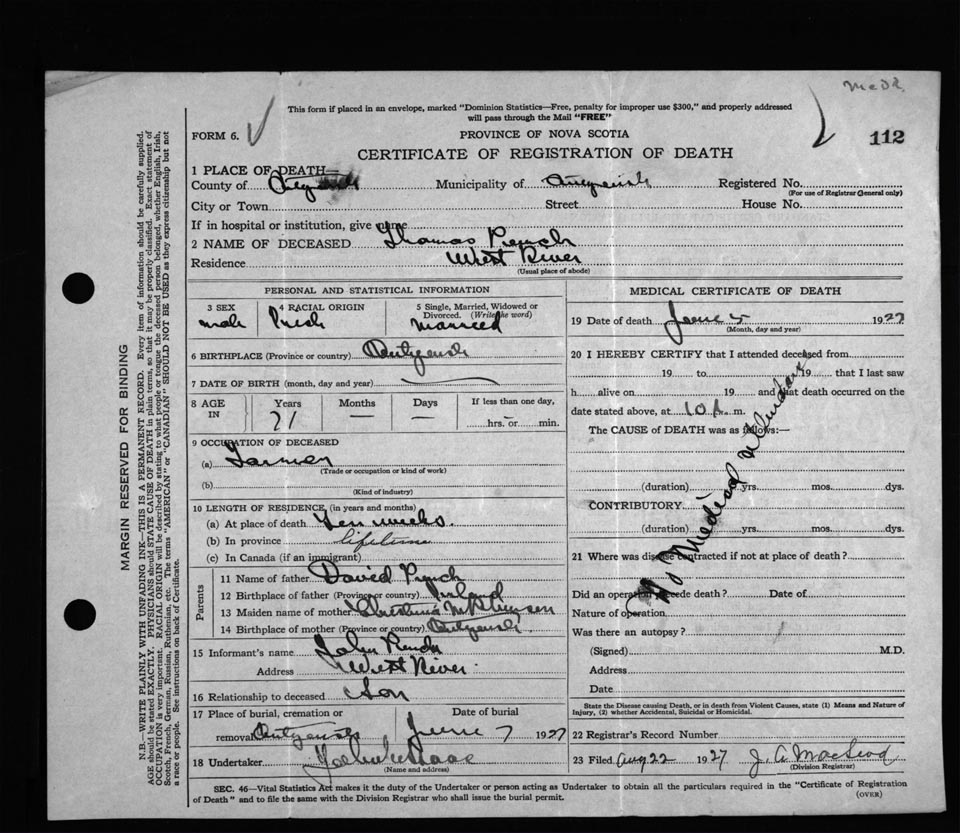 McDR.
This form if placed in an envelope, marked "Dominion Statistics—Free, penalty for improper use $300," and properly addressed
will pass through the Mail "FREE"
FORM 6.
PROVINCE OF NOVA SCOTIA
112
CERTIFICATE OF REGISTRATION OF DEATH
1 PLACE OF DEATH—
County of Antigonish Municipality of Antigonish Registered No.
(For use of Registrar General only)
City or Town Street House No.
If in hospital or institution, give name
2 NAME OF DECEASED Thomas
Residence West River
(Usual place of abode)
PERSONAL AND STATISTICAL INFORMATION
3 SEX 4 RACIAL ORIGIN 5 Single, Married, Widowed or Divorced. (Write the word)
male Irish married
6 BIRTHPLACE (Province or country) Antigonish
7 DATE OF BIRTH (month, day and year) —
8 AGE IN Years Months Days If less than one day,
71 — — hrs. or min.
9 OCCUPATION OF DECEASED
(a) Farmer
(Trade or occupation or kind of work)
(b)
(Kind of industry)
10 LENGTH OF RESIDENCE (in years and months)
(a) At place of death Ten weeks.
(b) In province lifetime
(c) In Canada (if an immigrant)
Parents
11 Name of father David
12 Birthplace of father (Province or country) Ireland
13 Maiden name of mother Christina
14 Birthplace of mother (Province or country) Antigonish
15 Informant's name John
Address West River.
16 Relationship to deceased Son
17 Place of burial, cremation or Date of burial
removal Antigonish June 7 1927
18 Undertaker
(Name and address)
MEDICAL CERTIFICATE OF DEATH
19 Date of death June 5 1927
(Month, day and year)
20 I HEREBY CERTIFY that I attended deceased from
19 to 19 that I last saw
h alive on 19 and that death occurred on the
date stated above, at 10 m.
The CAUSE of DEATH was as follows:—
No Medical attendance
(duration) yrs. mos. dys.
CONTRIBUTORY
(duration) yrs. mos. dys.
21 Where was disease contracted if not at place of death?
Did an operation precede death? Date of
Nature of operation
Was there an autopsy?
(Signed) M.D.
Address
Date
State the Disease causing Death, or in death from Violent Causes, state (1) Means and Nature of
Injury, (2) whether Accidental, Suicidal or Homicidal.
22 Registrar's Record Number
23 Filed Aug 22 1927 J. A. MacLeod
(Division Registrar)
SEC. 46—Vital Statistics Act makes it the duty of the Undertaker or person acting as Undertaker to obtain all the particulars required in the "Certificate of Registration
of Death" and to file the same with the Division Registrar who shall issue the burial permit.
(OVER)
MARGIN RESERVED FOR BINDING
N.B.—WRITE PLAINLY WITH UNFADING INK—THIS IS A PERMANENT RECORD. Every item of information should be carefully supplied.
AGE should be stated EXACTLY. PHYSICIANS should STATE CAUSE OF DEATH in plain terms, so that it may be properly classified. Exact statement of
OCCUPATION is very important. RACIAL ORIGIN will be described by stating to what people or tongue the deceased person belonged, whether English, Irish,
Scotch, French, German, Russian, Ruthenian, etc. The terms "AMERICAN" or "CANADIAN" SHOULD NOT BE USED as they express citizenship but not
a race or people. See instructions on back of Certificate.